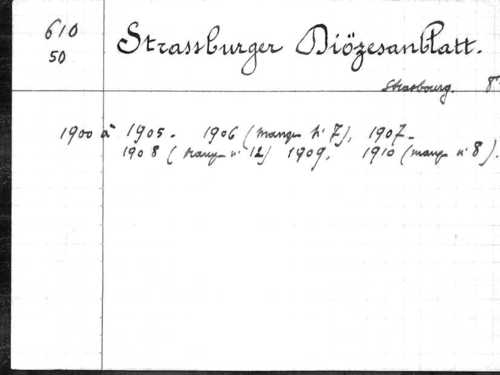 610
50
Strassburger Diözesanblatt.
Strasbourg. 8°
1900 à 1905. 1906 (manque n° 7), 1907.
1908 (manque n° 12) 1909, 1910 (manque n° 8).